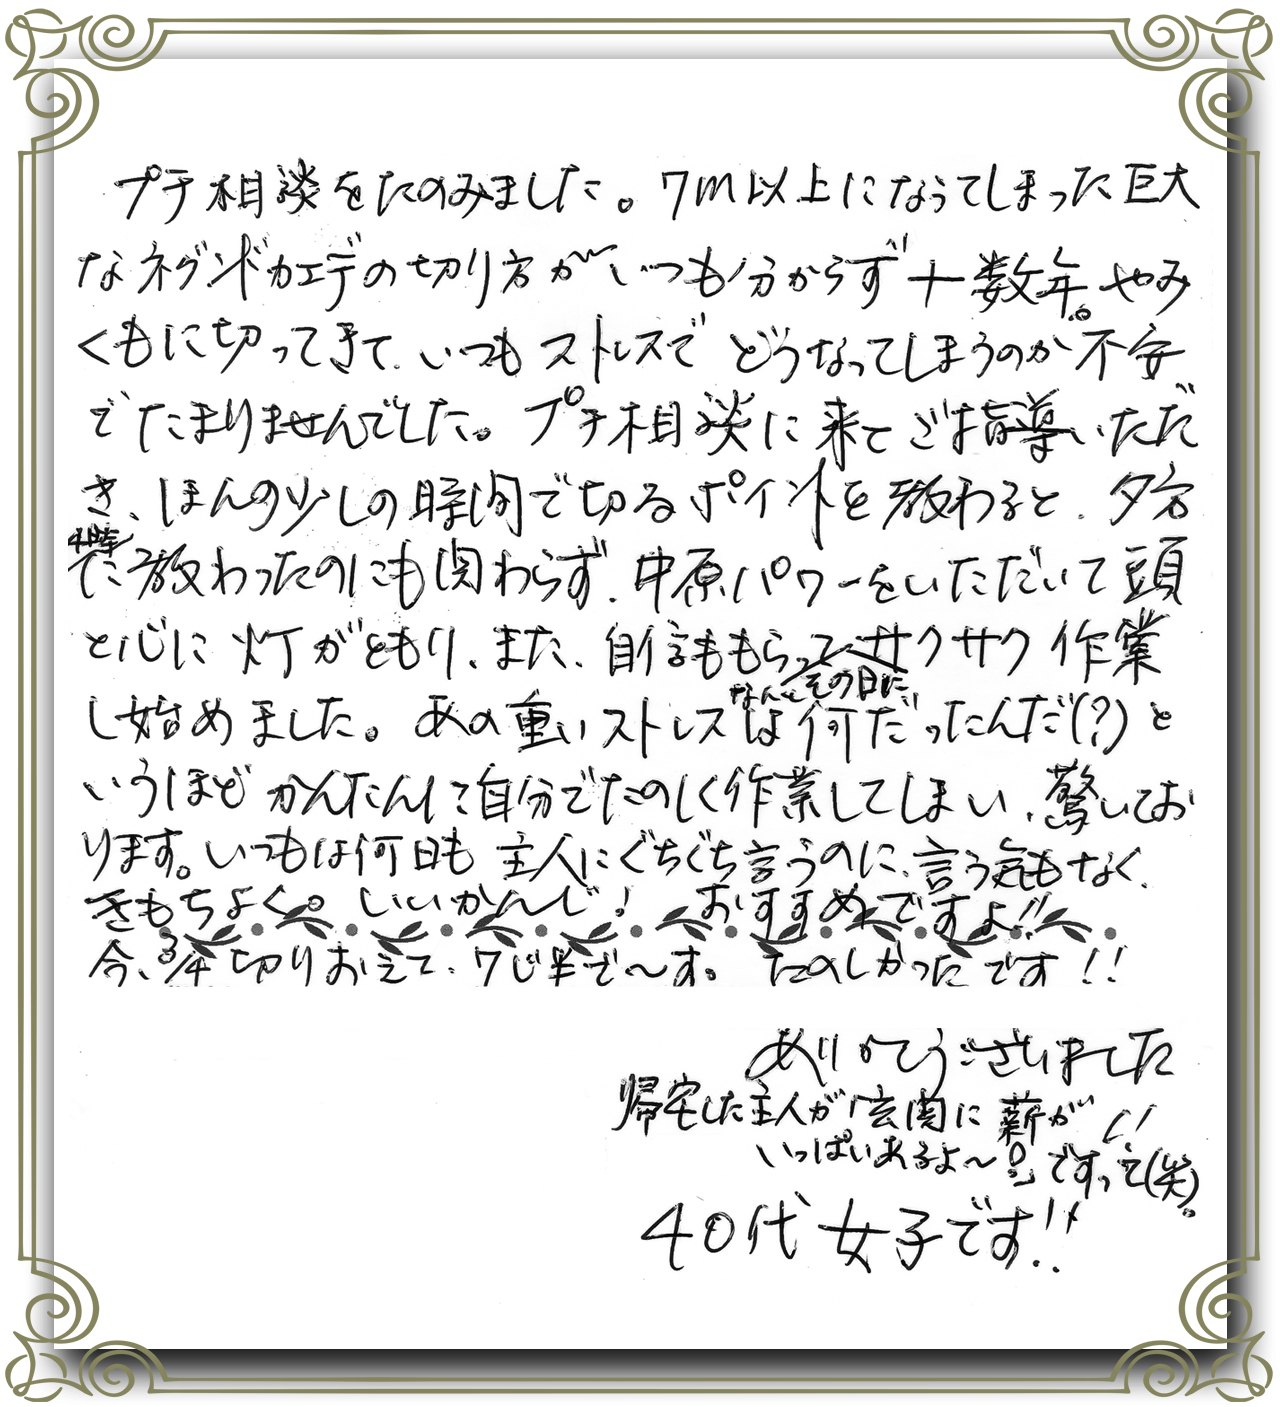 プチ相談をたのみました。7m以上になってしまった巨大
なネグンドカエデの切り方がいつも分からず十数年。やみ
くもに切ってきて、いつもストレスでどうなってしまうのか不安
でたまりませんでした。プチ相談に来てご指導いただ
き、ほんの少しの時間で切るポイントを教わると、夕方
4時
に教わったのにも関わらず、中原パワーをいただいて頭
と心に灯がともり、また、自信ももらってサクサク作業
なんとその日に
し始めました。あの重いストレスは何だったんだ(?)と
いうほどかんたんに自分でたのしく作業してしまい、驚いてお
ります。いつもは何日も主人にぐちぐち言うのに、言う気もなく、
きもちよく。いいかんじ! おすすめですよ!!
今、3/4切りおえて、7じ半で〜す。たのしかったです!!
ありがとうございました
帰宅した主人が「玄関に薪が
いっぱいあるよ〜!」ですって(笑)。
40代女子です!!